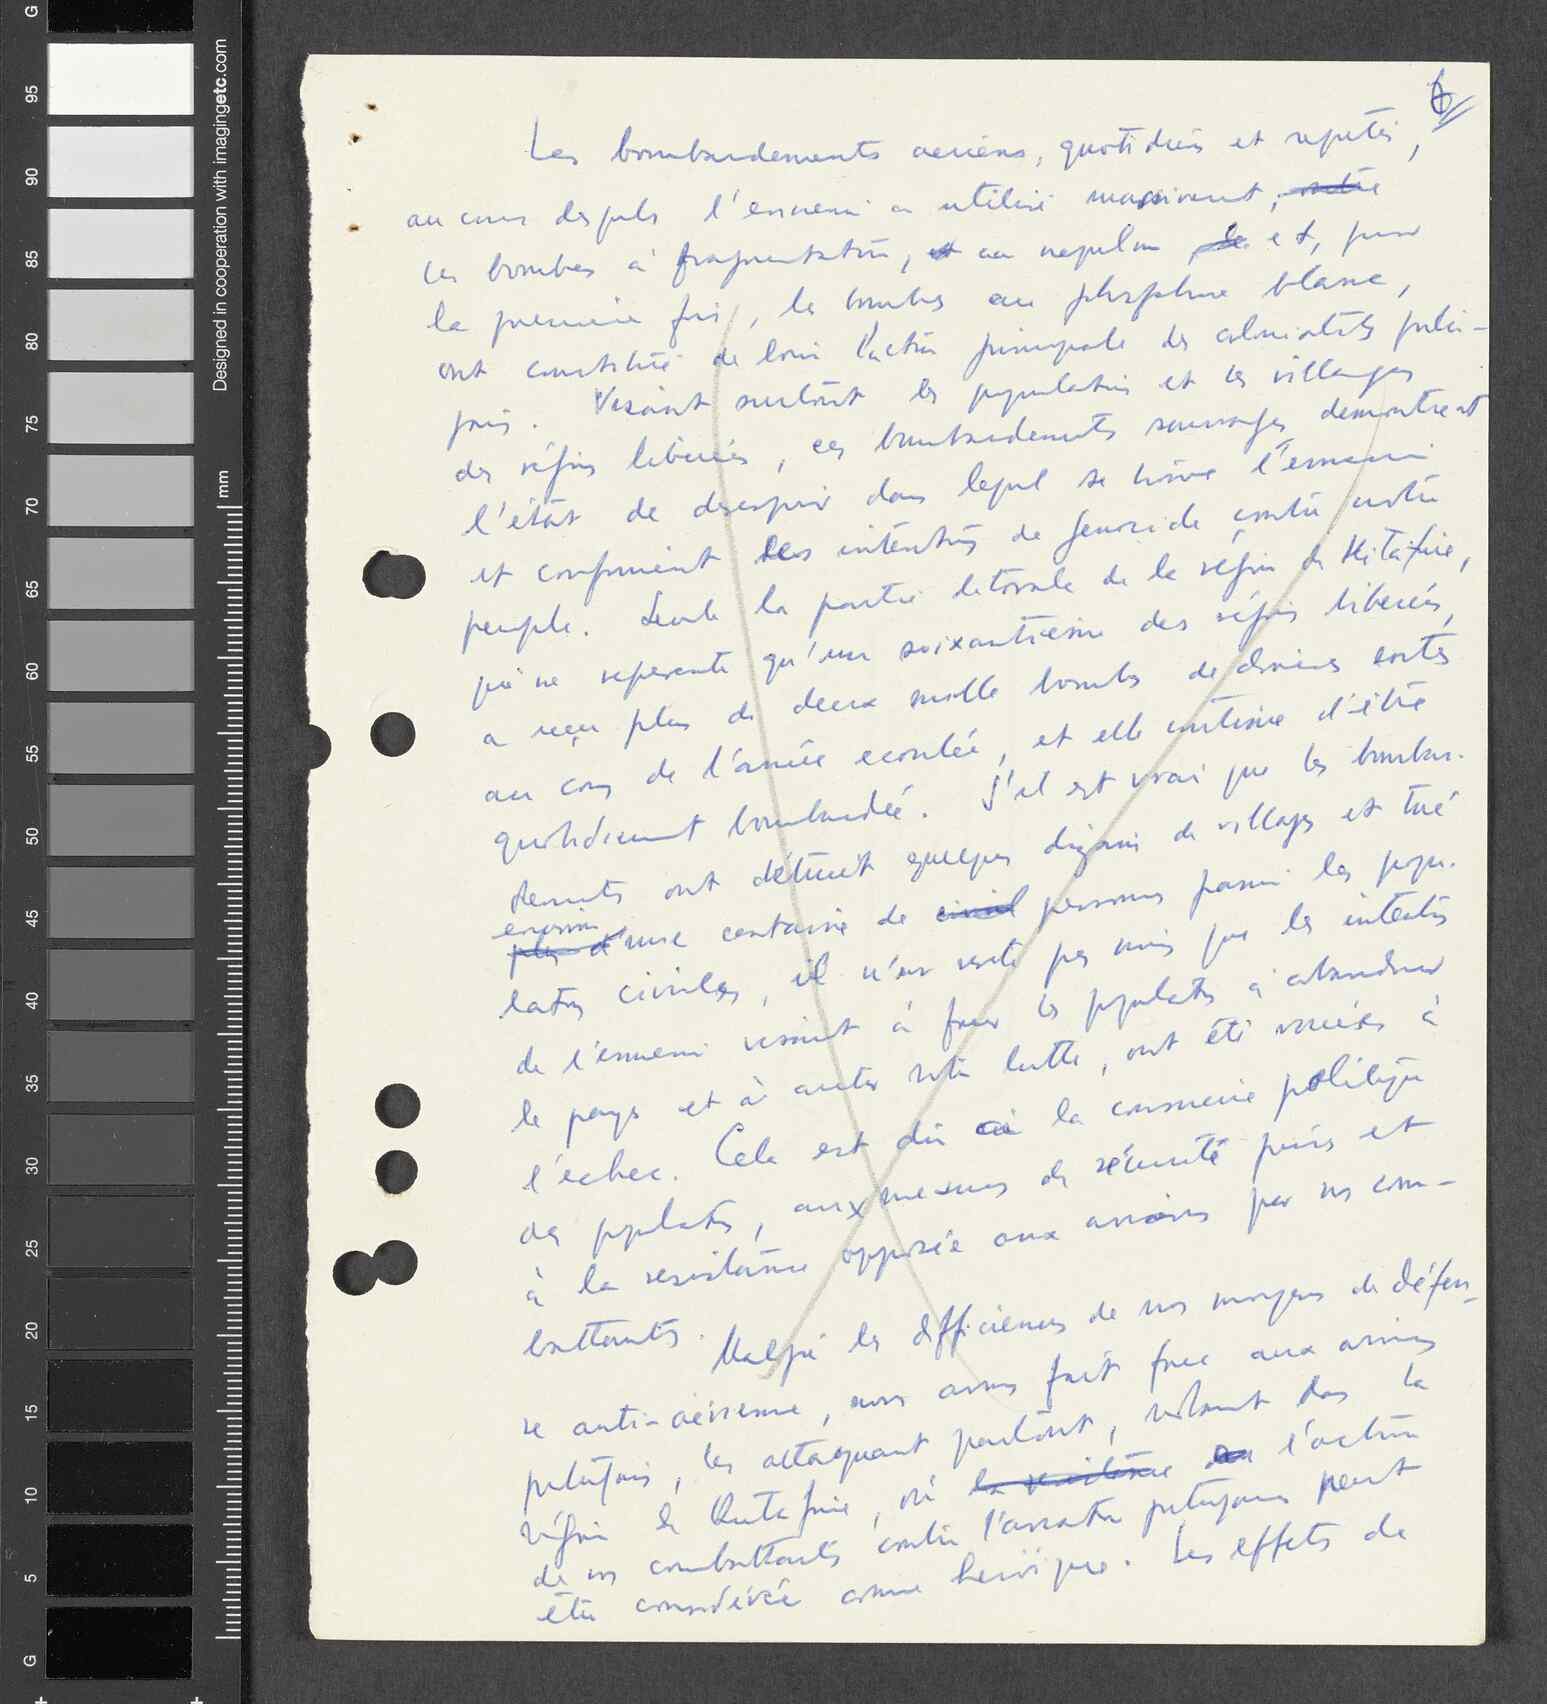 6
Les bombardements aeriens, quotidiens et repetés,
au cours desquels l'ennemi a utilisé massivement, outre
les bombes à fragmentation, et au napalm et, pour
la première fois, les bombes au phosphore blanc,
ont constitué de loin l'action principale des colonialistes portu-
gais. Visant surtout les populations et les villages
des régions liberées, ces bombardements sauvages demontrent
l'état de desespoir dans lequel se trouve l'ennemi
et confirment les intentions de genocide contre notre
peuple. Seule la partie litorale de la région de Kitafine,
qui ne represente qu'un soixantième des régions liberées,
a reçu plus de deux mille bombes de diverses sortes
au cours de l'année ecoulée, et elle continue d'être
quotidiennement bombardée. S'il est vrai que les bombar-
dements ont détruit quelques dizaines de villages et tué
environ
plus d'une centaine de civils personnes parmi les popu-
lations civiles, il n'en reste pas moins que les intentions
de l'ennemi visant à forcer les populations à abandonner
le pays et à arreter notre lutte, ont été vouées à
l'echec. Cela est dû à la conscience politique
des populations, aux mesures de sécurité prises et
à la resistance opposée aux avions par nos com-
battants.
Malgré les defficiences de nos moyens de défen-
se anti-aérienne, nous avons fait face aux avions
portugais, les attaquant partout, notamment dans la
région de Quitafine, où la resistance l'action
de nos combattants contre l'aviation portugaise peut
être considérée comme heroïque. Les effets de
Designed in cooperation with imagingetc.com
mm
G
95
90
85
80
75
70
65
60
55
50
45
40
35
30
25
20
15
10
5
G